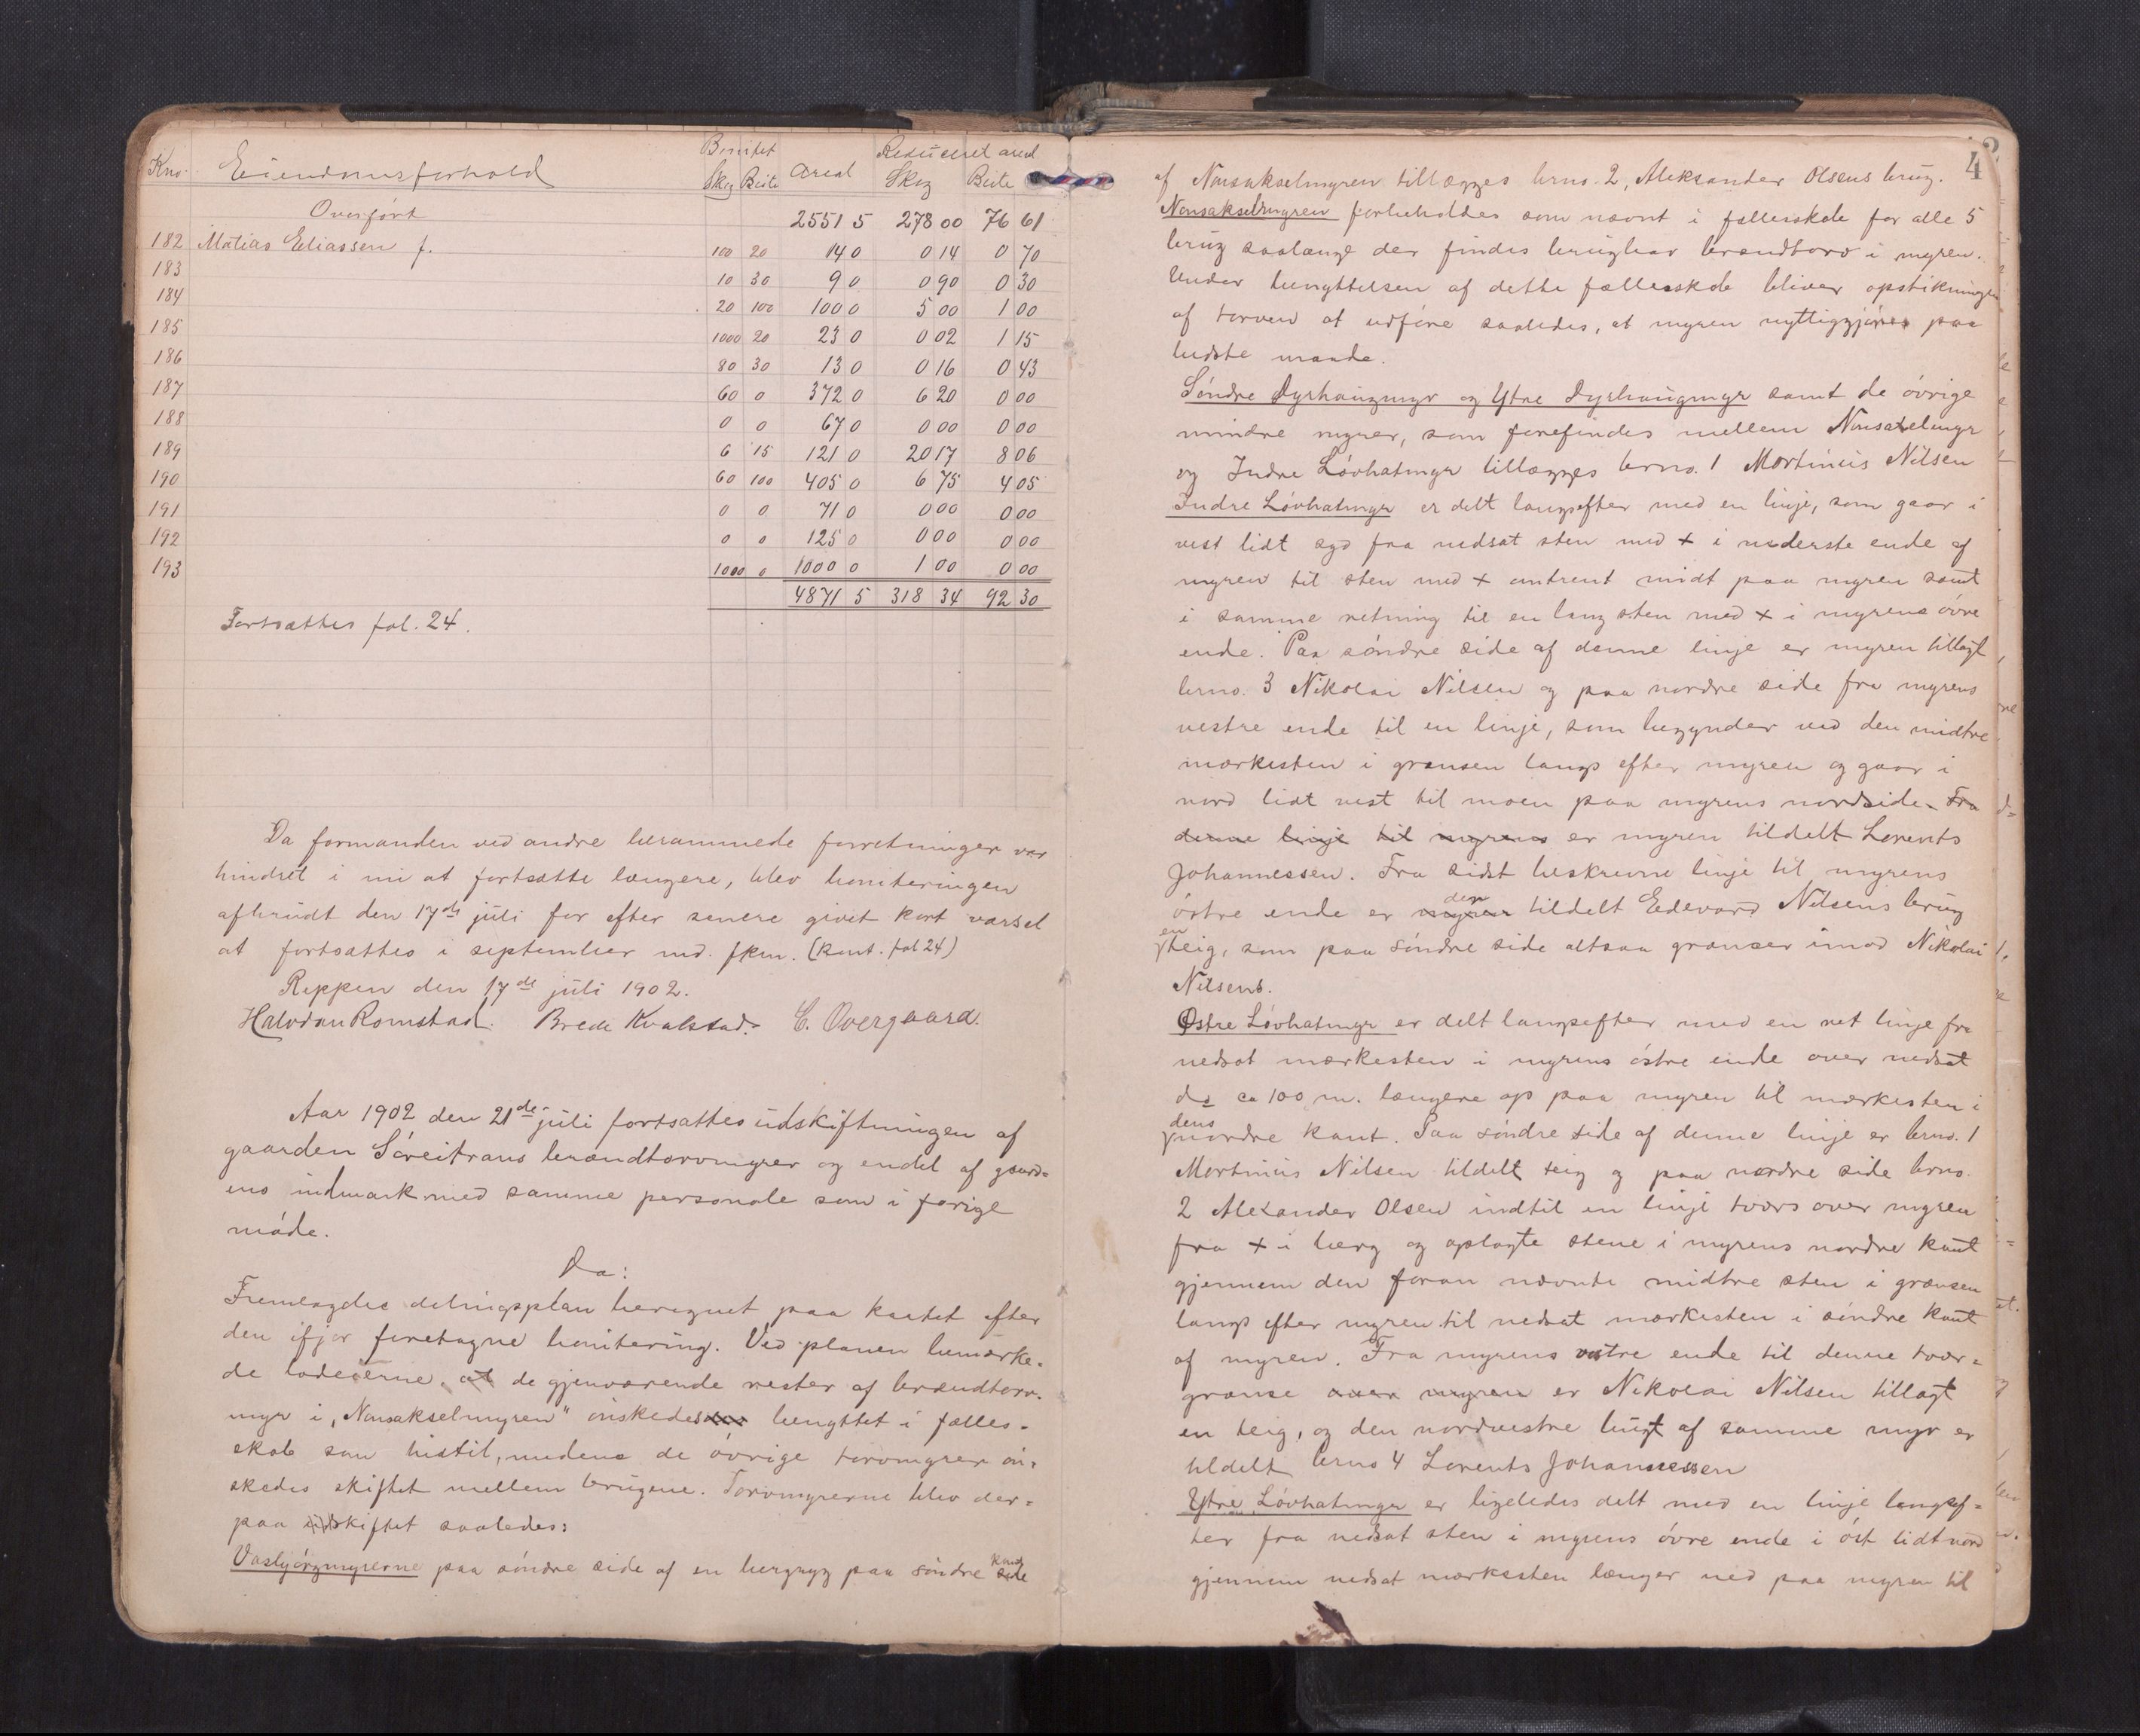 Kno. Eiendomsforhold Bonitet Skog Beite Areal Reduceret areal Skog Beite
Overført 2551 5 278 00 76 61
182 Matias Eliassen f. 100 20 14 0 0 14 0 70
183 10 30 9 0 0 90 0 30
184 20 100 100 0 5 00 1 00
185 1000 20 23 0 0 02 1 15
186 80 30 13 0 0 16 0 43
187 60 0 372 0 6 20 0 00
188 0 0 67 0 0 00 0 00
189 6 15 121 0 20 17 8 06
190 60 100 405 0 6 75 4 05
191 0 0 71 0 0 00 0 00
192 0 0 125 0 0 00 0 00
193 1000 0 1000 0 1 00 0 00
4871 5 318 34 92 30
Fortsættes fol. 24.
Da formanden ved andre berammede forretninger var
hindret i nu at fortsætte længere, blev boniteringen
afbrudt den 17de juli for efter senere givet kort varsel
at fortsættes i september md. fkm. (kont. fol 24)
Reppen den 17de juli 1902.
Halvdan Romstad. Brede Kvalstad. C. Overgaard.
Aar 1902 den 21de juli fortsattes udskiftningen af
gaarden Sóreitrans brændtorvmyrer og endel af gaard=
ens indmark med samme personale som i forige
móde.
Da:
Fremlagdes delingsplan beregnet paa kartet efter
den ifjor foretagne bonitering. Ved planen bemærke=
de lodeierne, at de gjenværende rester af brændtorv=
myr i "Nonsakselmyren" ónskedes benyttet i fælles=
skab som hidtil, medens de óvrige torvmyrer ón=
skedes skiftet mellem brugene. Torvmyrerne blev der=
paa udskiftet saaledes:
Vasbjórgmyrerne paa sóndre side af en bergryg paa sóndre kant side
42
af Nonsakselmyren tillægges brno. 2, Aleksander Olsens brug.
Nonsakselmyren forbeholdes som nævnt i fællesskab for alle 5
brug saalænge der findes brugbar brændtorv i myren.
Under benyttelsen af dette fællesskab bliver opstikningen
af torven at udfóre saaledes, at myren nyttiggjóres paa
bedste maade.
Sóndre Dyrhaugmyr og Ytre Dyrhaugmyr samt de óvrige
mindre myrer, som forefindes mellem Nonsakselmyr
og Indre Lóvhatmyr tillægges brno. 1 Mortinus Nilsen
Indre Lóvhatmyr er delt langsefter med en linje, som gaar i
vest lidt syd fra nedsat sten med + i nederste ende af
myren til sten med + omtrent midt paa myren samt
i samme retning til en lang sten med + i myrens óvre
ende. Paa sóndre side af denne linje er myren tillagt
brno. 3 Nikolai Nilsen og paa nordre side fra myrens
vestre ende til en linje, som begynder ved den midtre
mærkesten i grænsen langs efter myren og gaar i
nord lidt vest til moen paa myrens nordside. Fra
denne linje til myrens er myren tildelt Lorents
Johannessen. Fra sidst beskrevne linje til myrens
óstre ende er myren den tildelt Edevard Nilsens brug
en teig, som paa sóndre side altsaa grænser imod Nikolai
Nilsens.
Østre Lóvhatmyr er delt langsefter med en ret linje fra
nedsat mærkesten i myrens óstre ende over nedsat
do ca 100 m. længere op paa myren til mærkesten i
dens nordre kant. Paa sóndre side af denne linje er brno. 1
Mortinus Nilsen tildelt teig og paa nordre side brno.
2 Alexander Olsen indtil en linje tværs over myren
fra + i berg og oplagte stene i myrens nordre kant
gjennem den foran nævnte midtre sten i grænsen
langs efter myren til nedsat mærkesten i sóndre kant
af myren. Fra myrens vestre ende til denne tvær=
grænse over myren er Nikolai Nilsen tillagt
en teig, og den nordvestre bugt af samme myr er
tildelt brno 4 Lorents Johannessen
Ytre Lóvhatmyr er ligeledes delt med en linje langsef=
ter fra nedsat sten i myrens óvre ende i óst lidt nord
gjennem nedsat mærkesten længer ned paa myren til